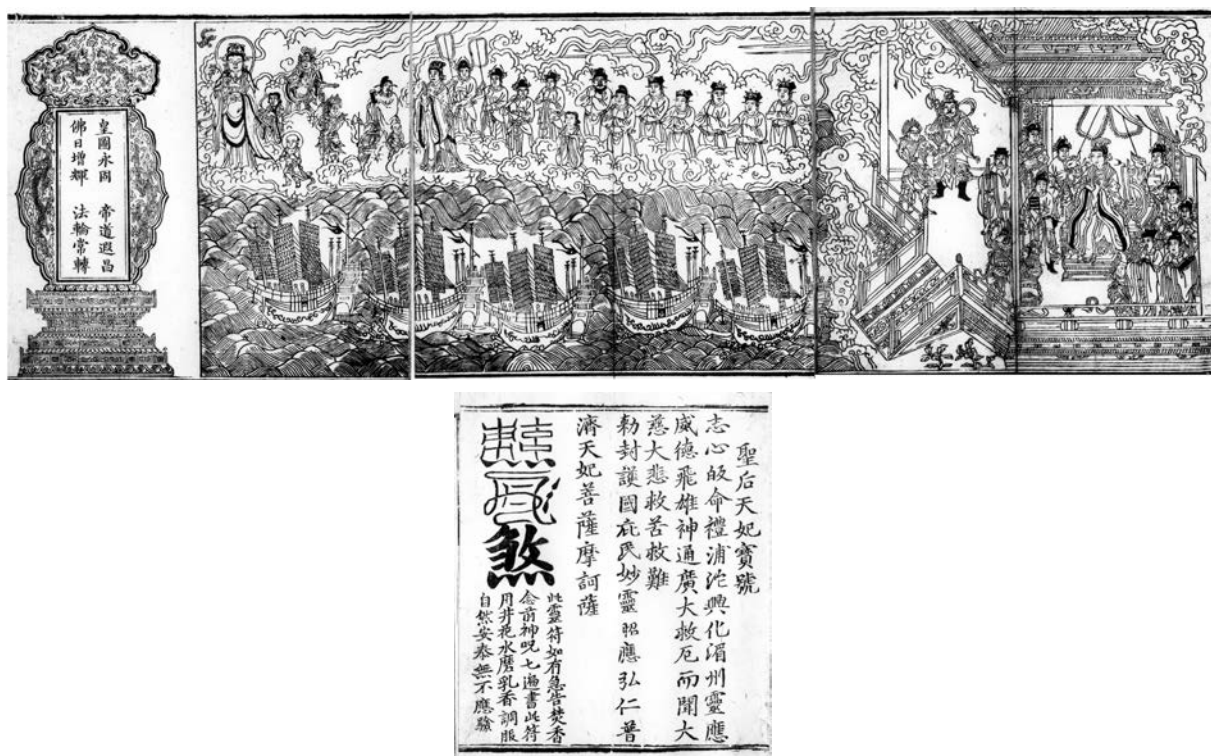 皇圖永固　帝道遐昌
佛日增輝　法輪常轉
聖后天妃寶號
志心皈命禮浦沱興化湄州靈應
威德飛雄神通廣大救厄而聞大
慈大悲救苦救難
勅封護國庇民妙靈昭應弘仁普
濟天妃菩薩摩訶薩
煞
此靈符如有急告焚香
念前神呪七遍書此符
用井花水磨乳香調服
自然安泰無不應驗